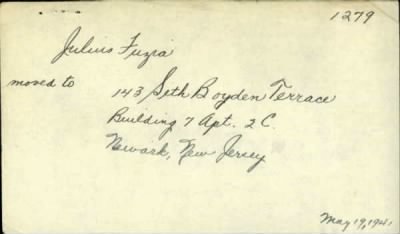 1279
Julius Fuzia
moved to
143 Seth Boyden Terrace
Building 7 Apt. 2C.
Newark, New Jersey
May 19, 1941